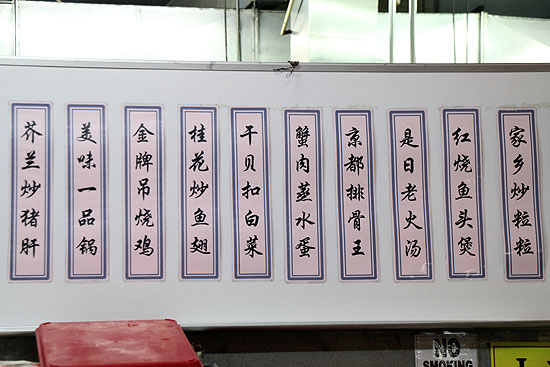 芥兰炒猪肝
美味一品锅
金牌吊烧鸡
桂花炒鱼翅
干贝扣白菜
蟹肉蒸水蛋
京都排骨王
是日老火汤
红烧鱼头煲
家乡炒粒粒
NO
SMOKING